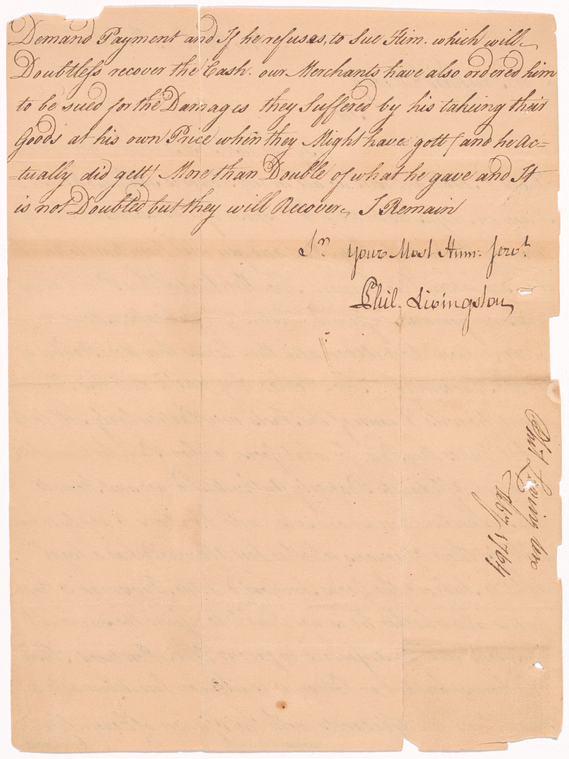 Demand Payment and If he refuses, to Sue Him. which will
Doubtless recover the Cash. our Merchants have also ordered him
to be sued for the Damages they Suffered by his takeing their
Goods at his own Price when they Might have gott (and he Ac=
=tually did gett) More than Double of what he gave and It
is not Doubted but they will Recover, I Remain
Sr. Your Most Hum. Servt.
Phil. Livingston
Phil Livingston
1764